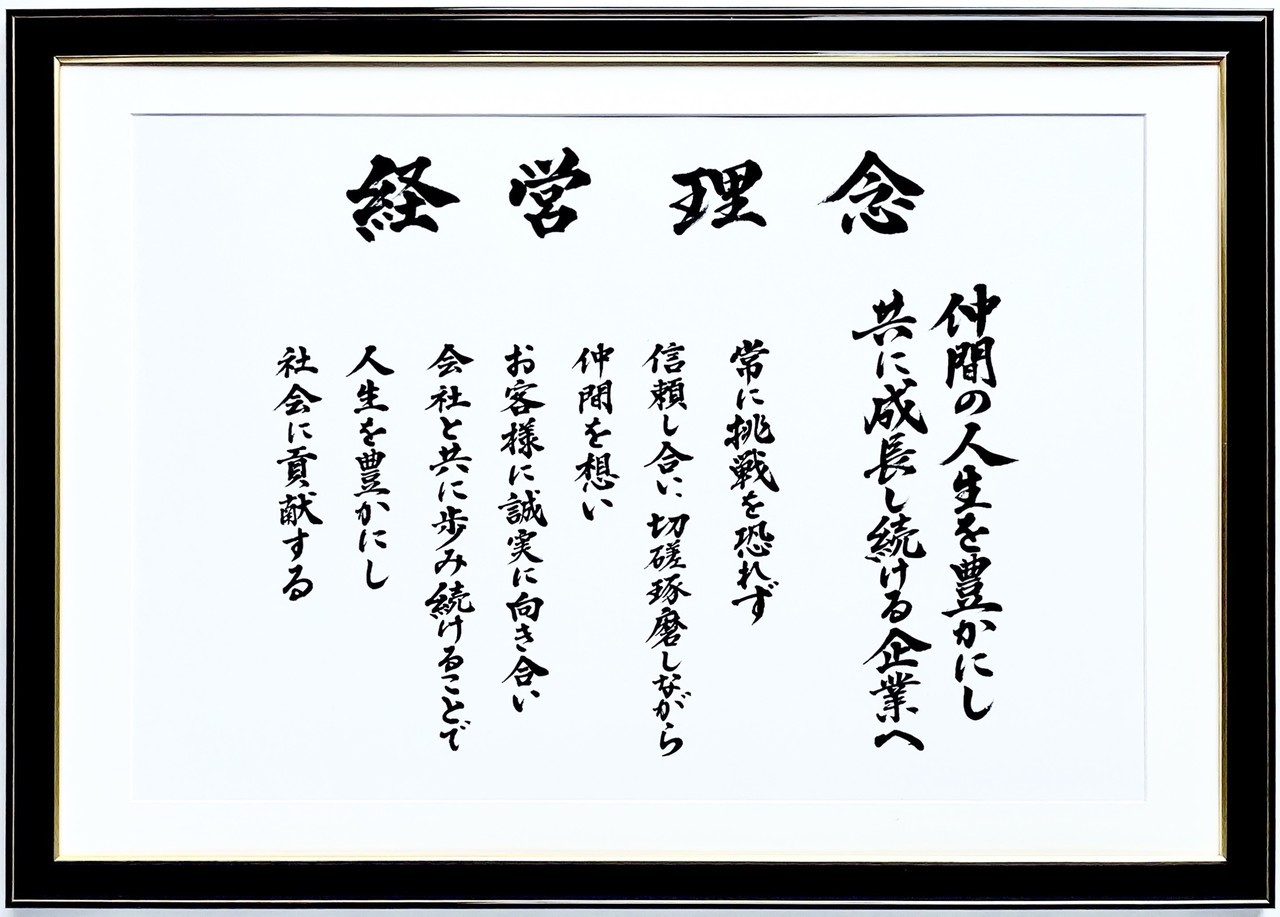 経営理念
仲間の人生を豊かにし
共に成長し続ける企業へ
常に挑戦を恐れず
信頼し合い切磋琢磨しながら
仲間を想い
お客様に誠実に向き合い
会社と共に歩み続けることで
人生を豊かにし
社会に貢献する